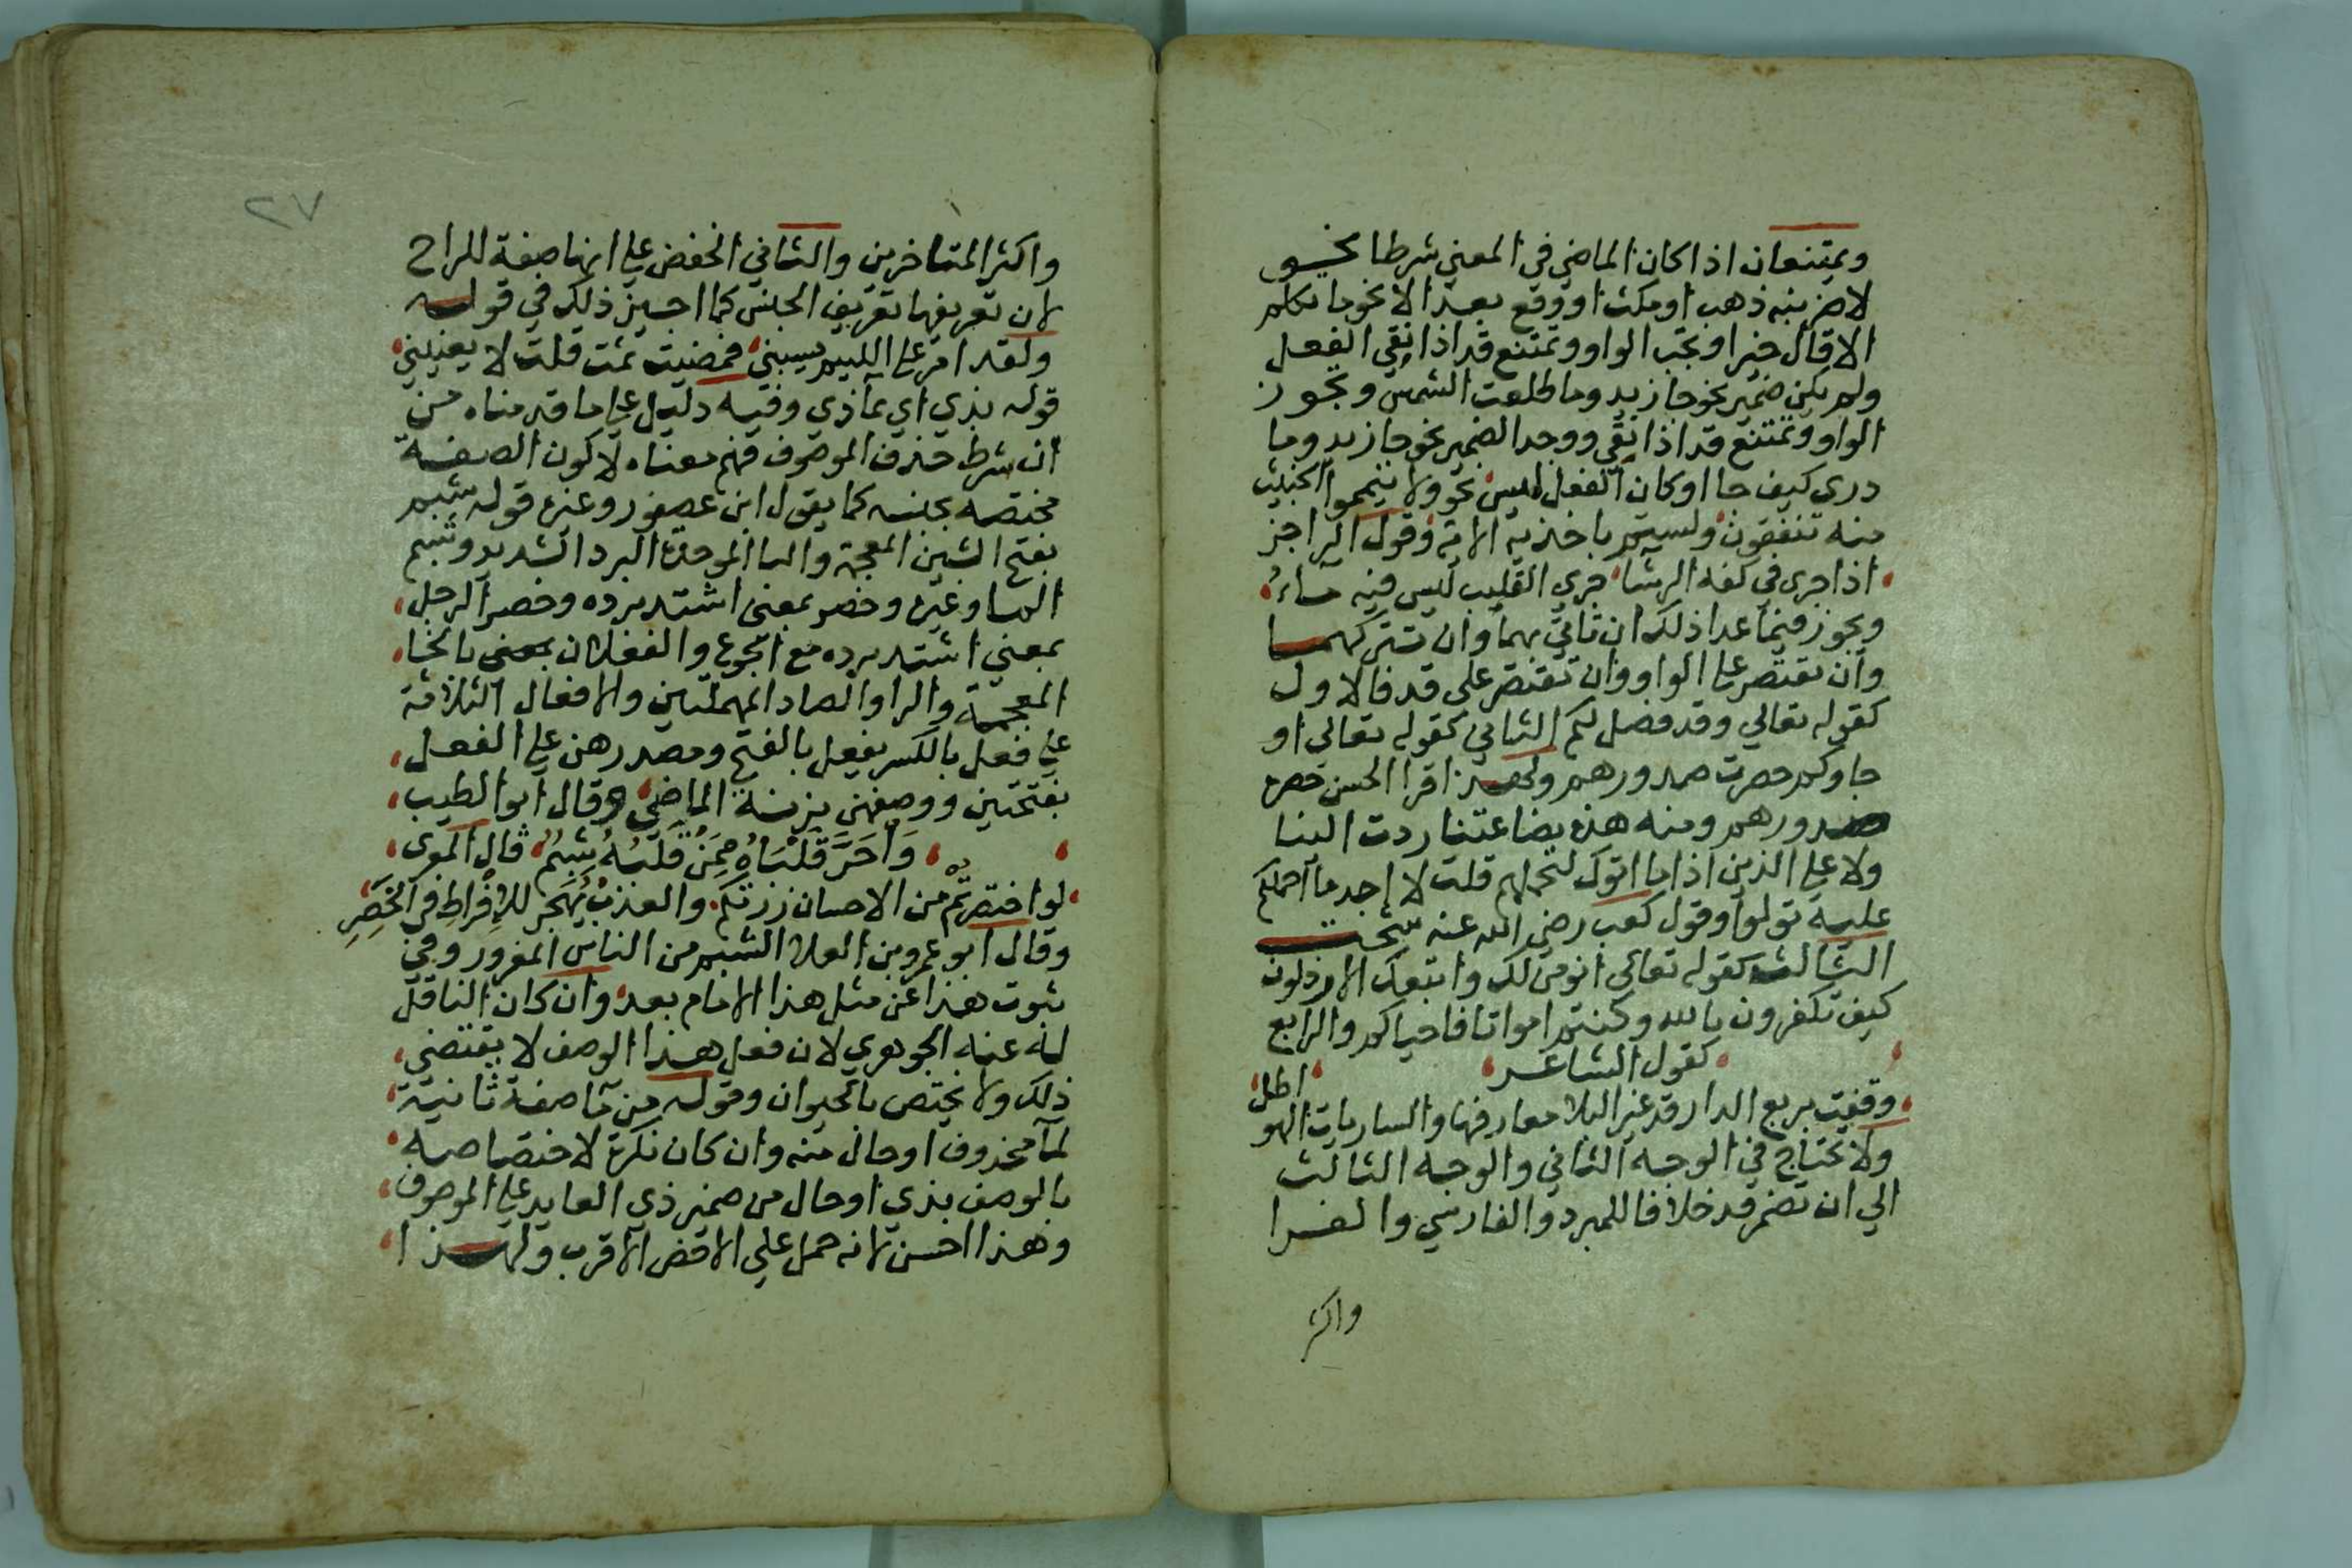 ويمتنعان اذا كان الماضي في المعني شرطا نحو
لاضربنه ذهب او مكث او وقع بعد الا نحو ما تكلم
الا قال خيرا وتجب الواو وتمتنع قد اذا نفي الفعل
ولم يكن ضمير نحو جا زيد وما طلعت الشمس وتجوز
الواو وتمتنع قد اذا نفي ووجد الضمير نحو جا زيد وما
دري كيف جا او كان الفعل ليس نحو ولا تيمموا الخبيث
منه تنفقون ولستم باخذيه الاية وقول الراجز
اذا جرى في كفه الرشا جري القليب ليس فيه ماء
ويجوز فيما عدا ذلك ان تاتي بهما وان تتركهما
وان تقتصر علي الواو وان تقتصر على قد فالاول
كقوله تعالي وقد فصل لكم الثاني كقوله تعالي او
جاوكم حصرت صدورهم ولهذا قرا الحسن حصرة
صدورهم ومنه هذه بضاعتنا ردت الينا
ولا علي الذين اذا ما اتوك لتحملهم قلت لا اجد ما احملكم
عليه تولوا وقول كعب رضي الله عنه شجت
الثالث كقوله تعالي انومن لك واتبعك الارذلون
كيف تكفرون بالله وكنتم امواتا فاحياكم والرابع
كقول الشاعر
وقفت بربع الدار قد غير البلا معارفها والساريات الهواطل
ولا تحتاج في الوجه الثاني والوجه الثالث
الي ان تضمر قد خلافا للمبرد والفارسي والفرا
واكثر
٢٧
واكثر المتاخرين والثاني الخفض علي انها صفة للراح
لان تعريفها تعريف الجنس كما اجيز ذلك في قوله
ولقد امر علي اللييم يسبني فمضيت ثمت قلت لا يعنيني
قوله بذي اي بماذي وفيه دليل علي ما قدمناه من
ان شرط حذف الموصوف فهم معناه لا كون الصفة
مختصه بجنسه كما يقول ابن عصفور وغيره قوله شبم
بفتح الشين المعجمة والبا الموحدة البرد الشديد وشبم
الما وغيره وخصر بمعنى اشتد برده وخصر الرجل
بمعني اشتد برده مع الجوع والفعلان بمعنى بالخا
المعجمة والرا والصاد المهملتين والافعال الثلاثة
علي فعل بالكسر يفعل بالفتح ومصدرهن علي الفعل
بفتحتين ووصفهن بزنة الماضي وقال ابو الطيب
وَاحَرَّ قَلْبَاهُ مِمَّنْ قَلْبُهُ شَبِمُ قال المعري
لو اختصرتم من الاحسان زرتكم والعذب يُهْجَر للإفْراطِ في الخَصَرِ
وقال ابو عمرو بن العلا الشبم من الناس المقرور وفي
ثبوت هذا عن مثل هذا الامام بعد وان كان الناقل
له عنه الجوهري لان فعل هذا الوصف لا يقتضي
ذلك ولا يختص بالحيوان وقوله من ما صفة ثانية
لما محذوف او حال منه وان كان نكرة لاختصاصه
بالوصف بذي او حال من ضمير ذي العايد علي الموصوف
وهذا احسن لانه حمل علي الاقض الاقرب ولهذا